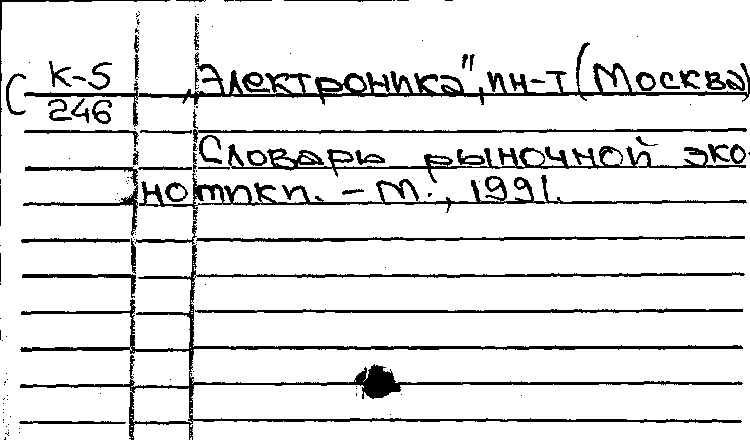 С К-5
246
„Электроника", ин-т (Москва)
Словарь рыночной эко-
номики. – М., 1991.